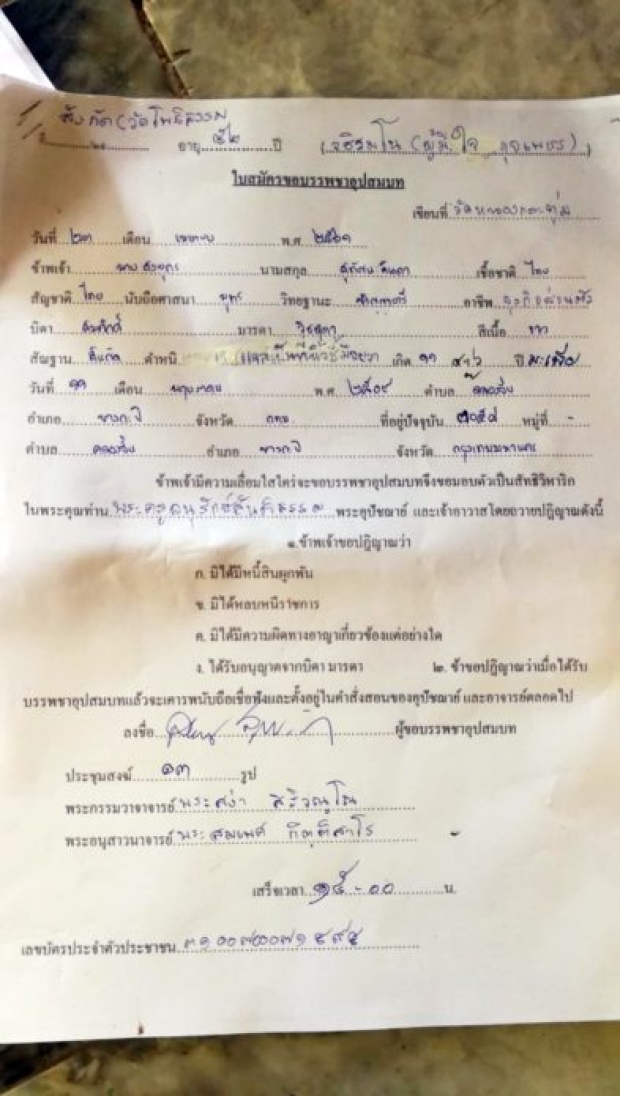 สังกัด (วัดโพธิธรรม
อายุ ๕๒ ปี ( (ผู้มีใจ
ใบสมัครขอบรรพชาอุปสมบท
เขียนที่ วัดหนองกระทุ่ม
วันที่ ๒๓ เดือน เมษายน พ.ศ ๒๕๖๑
ข้าพเจ้า นาย นามสกุล เชื้อชาติ ไทย
สัญชาติ ไทย นับถือศาสนา พุทธ วิทยฐานะ อาชีพ ธุรกิจส่วนตัว
บิดา สมศักดิ์ มารดา สีเนื้อ ขาว
สัณฐาน สันทัด ตำหนิ เกิด ๑๑ ปี มะเมีย
วันที่ ๑๑ เดือน พฤษภาคม พ.ศ ๒๕๐๙ ตำบล คลองจั่น
อำเภอ บางกะปิ จังหวัด กทม. ที่อยู่ปัจจุบัน ๓๐๕๘ หมู่ที่ -
ตำบล คลองจั่น อำเภอ บางกะปิ จังหวัด กรุงเทพมหานคร
ข้าพเจ้ามีความเลื่อมใสใคร่จะขอบรรพชาอุปสมบทจึงขอมอบตัวเป็นสัทธิวิหาริก
ในพระคุณท่าน พระครูอนุรักษ์สันติธรรม พระอุปัชฌาย์ และเจ้าอาวาสโดยถวายปฏิญาณดังนี้
๑.ข้าพเจ้าขอปฏิญาณว่า
ก. มิได้มีหนี้สินผูกพัน
ข. มิได้หลบหนีราชการ
ค. มิได้มีความผิดทางอาญาเกี่ยวข้องแต่อย่างใด
ง. ได้รับอนุญาตจากบิดา มารดา ๒. ข้าขอปฏิญาณว่าเมื่อได้รับ
บรรพชาอุปสมบทแล้วจะเคารพนับถือเชื่อฟังและตั้งอยู่ในคำสั่งสอนของอุปัชฌาย์ และอาจารย์ตลอดไป
ลงชื่อ ผู้ขอบรรพชาอุปสมบท
ประชุมสงฆ์ ๑๓ รูป
พระกรรมวาจาจารย์ พระสง่า สิริวณฺโณ
พระอนุสาวนาจารย์ พระสมเพศ กิตฺติสาโร
เสร็จเวลา ๑๕-๐๐ น.
เลขบัตรประจำตัวประชาชน